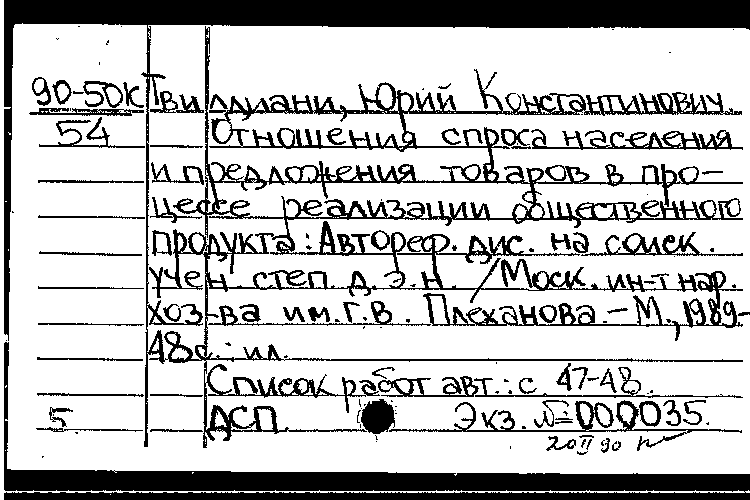 90-50К Твилдиани, Юрий Константинович.
54 Отношения спроса населения
и предложения товаров в про-
цессе реализации общественного
продукта: Автореф. дис. на соиск.
учен. степ. д. э. н. / Моск. ин-т нар.
хоз-ва им. Г. В. Плеханова. - М., 1989-
48 с.: ил.
Список работ авт.: с. 47-48.
5 ДСП. Экз. № 000035.
20 II 90